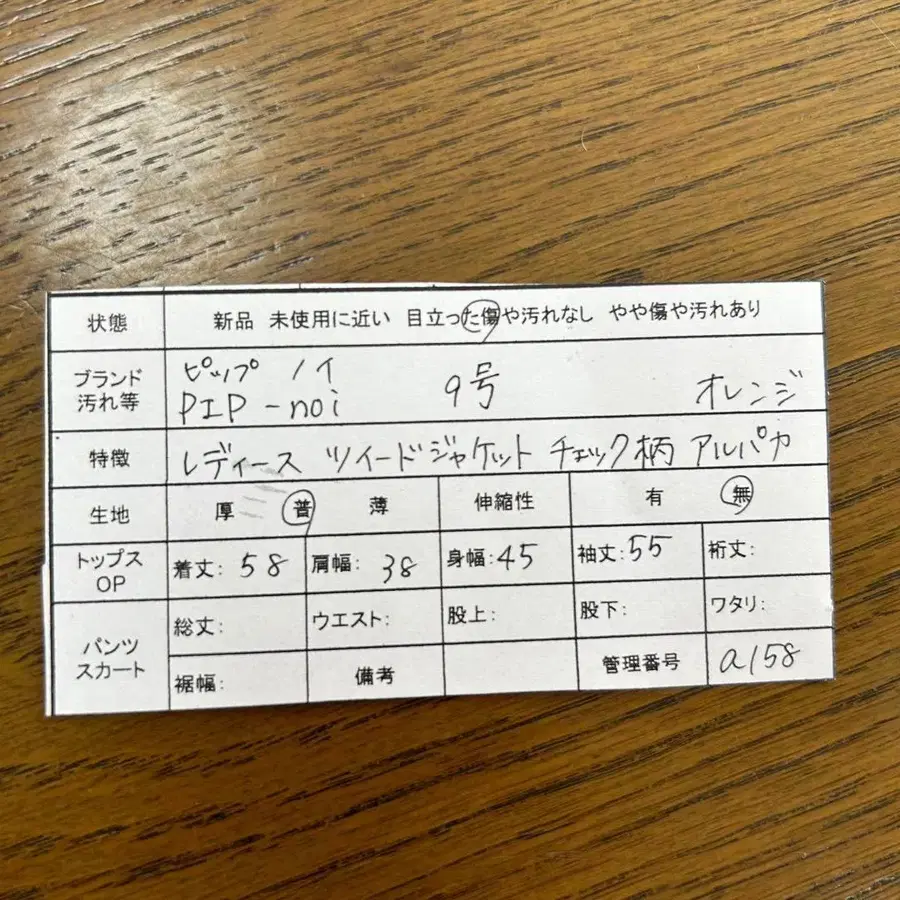 状態 新品 未使用に近い 目立った傷や汚れなし やや傷や汚れあり
ブランド 汚れ等 ピップ ノイ
PIP-noi 9号 オレンジ
特徴 レディース ツイードジャケット チェック柄 アルパカ
生地 厚 普 薄 伸縮性 有 無
トップス OP 着丈: 58 肩幅: 38 身幅: 45 袖丈: 55 裄丈:
パンツ スカート 総丈: ウエスト: 股上: 股下: ワタリ:
裾幅: 備考 管理番号 a158